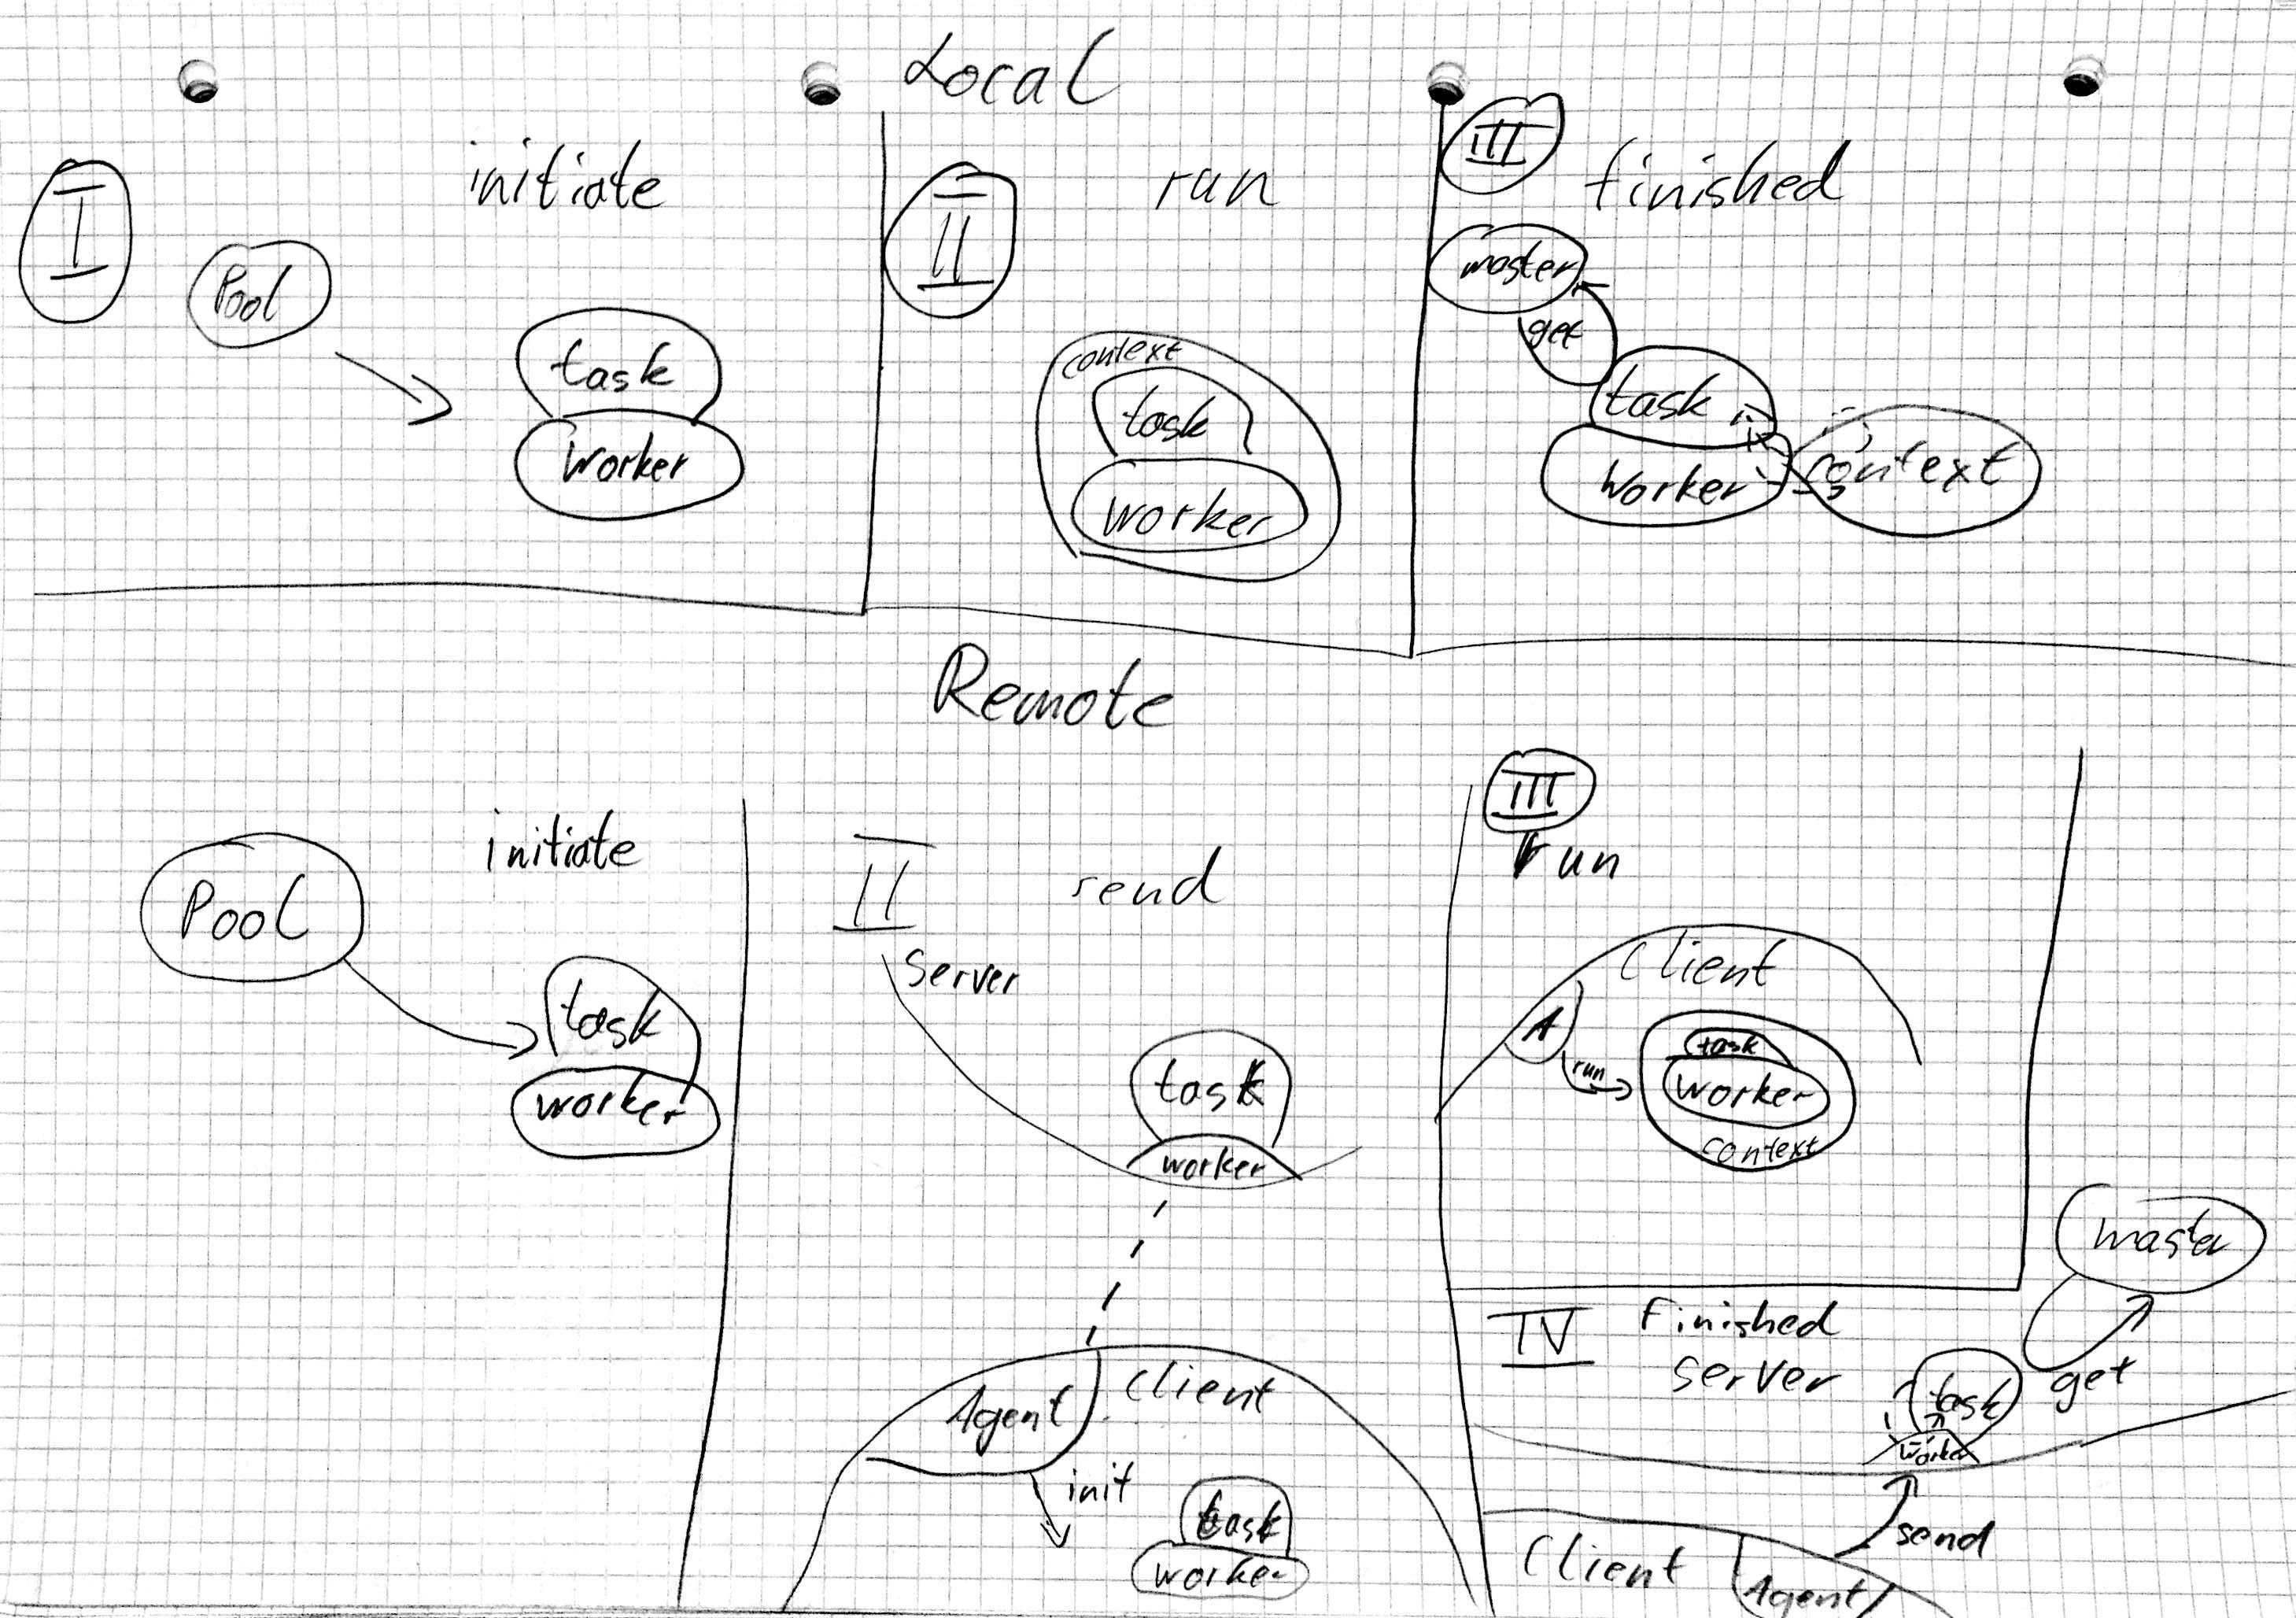 Local
I
initiate
Pool
task
Worker
II
run
context
task
worker
III
finished
master
get
task
Worker
context
Remote
initiate
Pool
task
worker
II
send
Server
task
worker
Agent
client
init
task
worker
III
run
Client
A
run
task
worker
context
IV
Finished
server
master
get
task
worker
send
Client
Agent